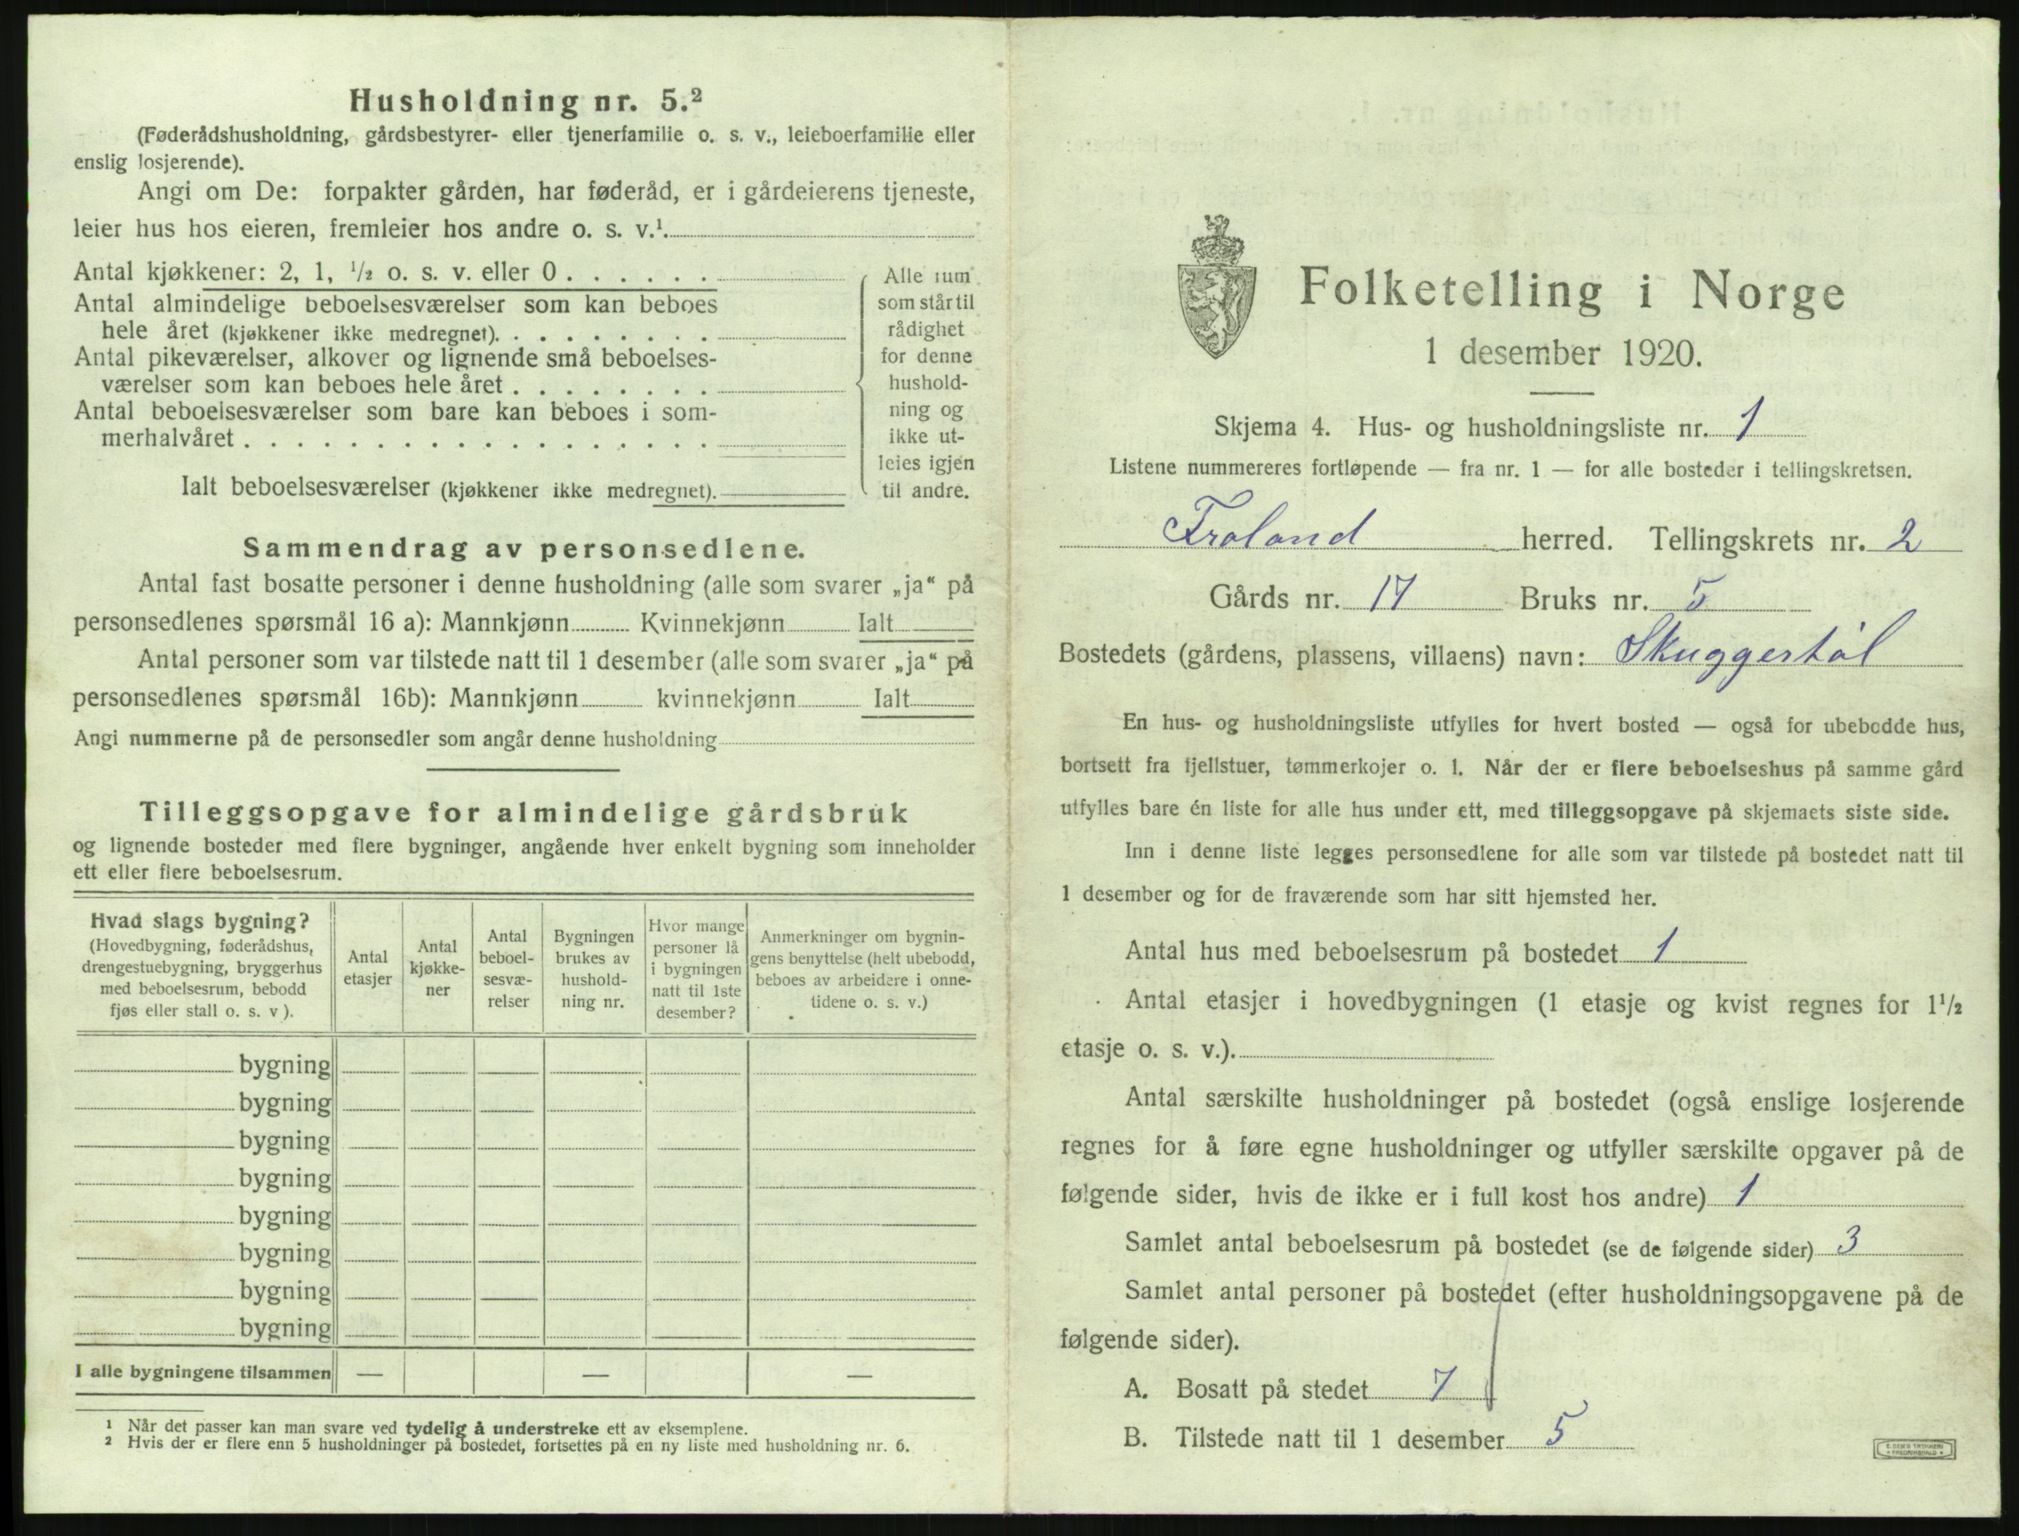 Husholdning nr. 5.²
(Føderådshusholdning, gårdsbestyrer- eller tjenerfamilie o. s. v., leieboerfamilie eller
enslig losjerende).
Angi om De: forpakter gården, har føderåd, er i gårdeierens tjeneste,
leier hus hos eieren, fremleier hos andre o. s. v.¹
Antal kjøkkener: 2, 1, ½ o. s. v. eller 0 . . . . . .
Antal almindelige beboelsesværelser som kan beboes
hele året (kjøkkener ikke medregnet). . . . . . . . .
Antal pikeværelser, alkover og lignende små beboelses-
værelser som kan beboes hele året . . . . . . . .
Antal beboelsesværelser som bare kan beboes i som-
merhalvåret . . . . . . . . . . . . . . . . . .
Ialt beboelsesværelser (kjøkkener ikke medregnet).
Alle rum
som står til
rådighet
for denne
hushold-
ning og
ikke ut-
leies igjen
til andre.
Sammendrag av personsedlene.
Antal fast bosatte personer i denne husholdning (alle som svarer „ja“ på
personsedlenes spørsmål 16 a): Mannkjønn Kvinnekjønn Ialt
Antal personer som var tilstede natt til 1 desember (alle som svarer „ja“ på
personsedlenes spørsmål 16b): Mannkjønn kvinnekjønn Ialt
Angi nummerne på de personsedler som angår denne husholdning
Tilleggsopgave for almindelige gårdsbruk
og lignende bosteder med flere bygninger, angående hver enkelt bygning som inneholder
ett eller flere beboelsesrum.
Hvad slags bygning?
(Hovedbygning, føderådshus,
drengestuebygning, bryggerhus
med beboelsesrum, bebodd
fjøs eller stall o. s. v ).
Antal
etasjer
Antal
kjøkke-
ner
Antal
beboel-
sesvæ-
relser
Bygningen
brukes av
hushold-
ning nr.
Hvor mange
personer lå
i bygningen
natt til 1ste
desember?
Anmerkninger om bygnin-
gens benyttelse (helt ubebodd,
beboes av arbeidere i onne-
tidene o. s. v.)
bygning
bygning
bygning
bygning
bygning
bygning
bygning
bygning
I alle bygningene tilsammen — — —
¹ Når det passer kan man svare ved tydelig å understreke ett av eksemplene.
² Hvis der er flere enn 5 husholdninger på bostedet, fortsettes på en ny liste med husholdning nr. 6.
Folketelling i Norge
1 desember 1920.
Skjema 4. Hus- og husholdningsliste nr. 1
Listene nummereres fortløpende — fra nr. 1 — for alle bosteder i tellingskretsen.
Froland herred. Tellingskrets nr. 2
Gårds nr. 17 Bruks nr. 5
Bostedets (gårdens, plassens, villaens) navn: Skuggestøl
En hus- og husholdningsliste utfylles for hvert bosted — også for ubebodde hus,
bortsett fra fjellstuer, tømmerkojer o. l. Når der er flere beboelseshus på samme gård
utfylles bare én liste for alle hus under ett, med tilleggsopgave på skjemaets siste side.
Inn i denne liste legges personsedlene for alle som var tilstede på bostedet natt til
1 desember og for de fraværende som har sitt hjemsted her.
Antal hus med beboelsesrum på bostedet 1
Antal etasjer i hovedbygningen (1 etasje og kvist regnes for 1½
etasje o. s. v.).
Antal særskilte husholdninger på bostedet (også enslige losjerende
regnes for å føre egne husholdninger og utfyller særskilte opgaver på de
følgende sider, hvis de ikke er i full kost hos andre) 1
Samlet antal beboelsesrum på bostedet (se de følgende sider) 3
Samlet antal personer på bostedet (efter husholdningsopgavene på de
følgende sider).
A. Bosatt på stedet 7
B. Tilstede natt til 1 desember 5